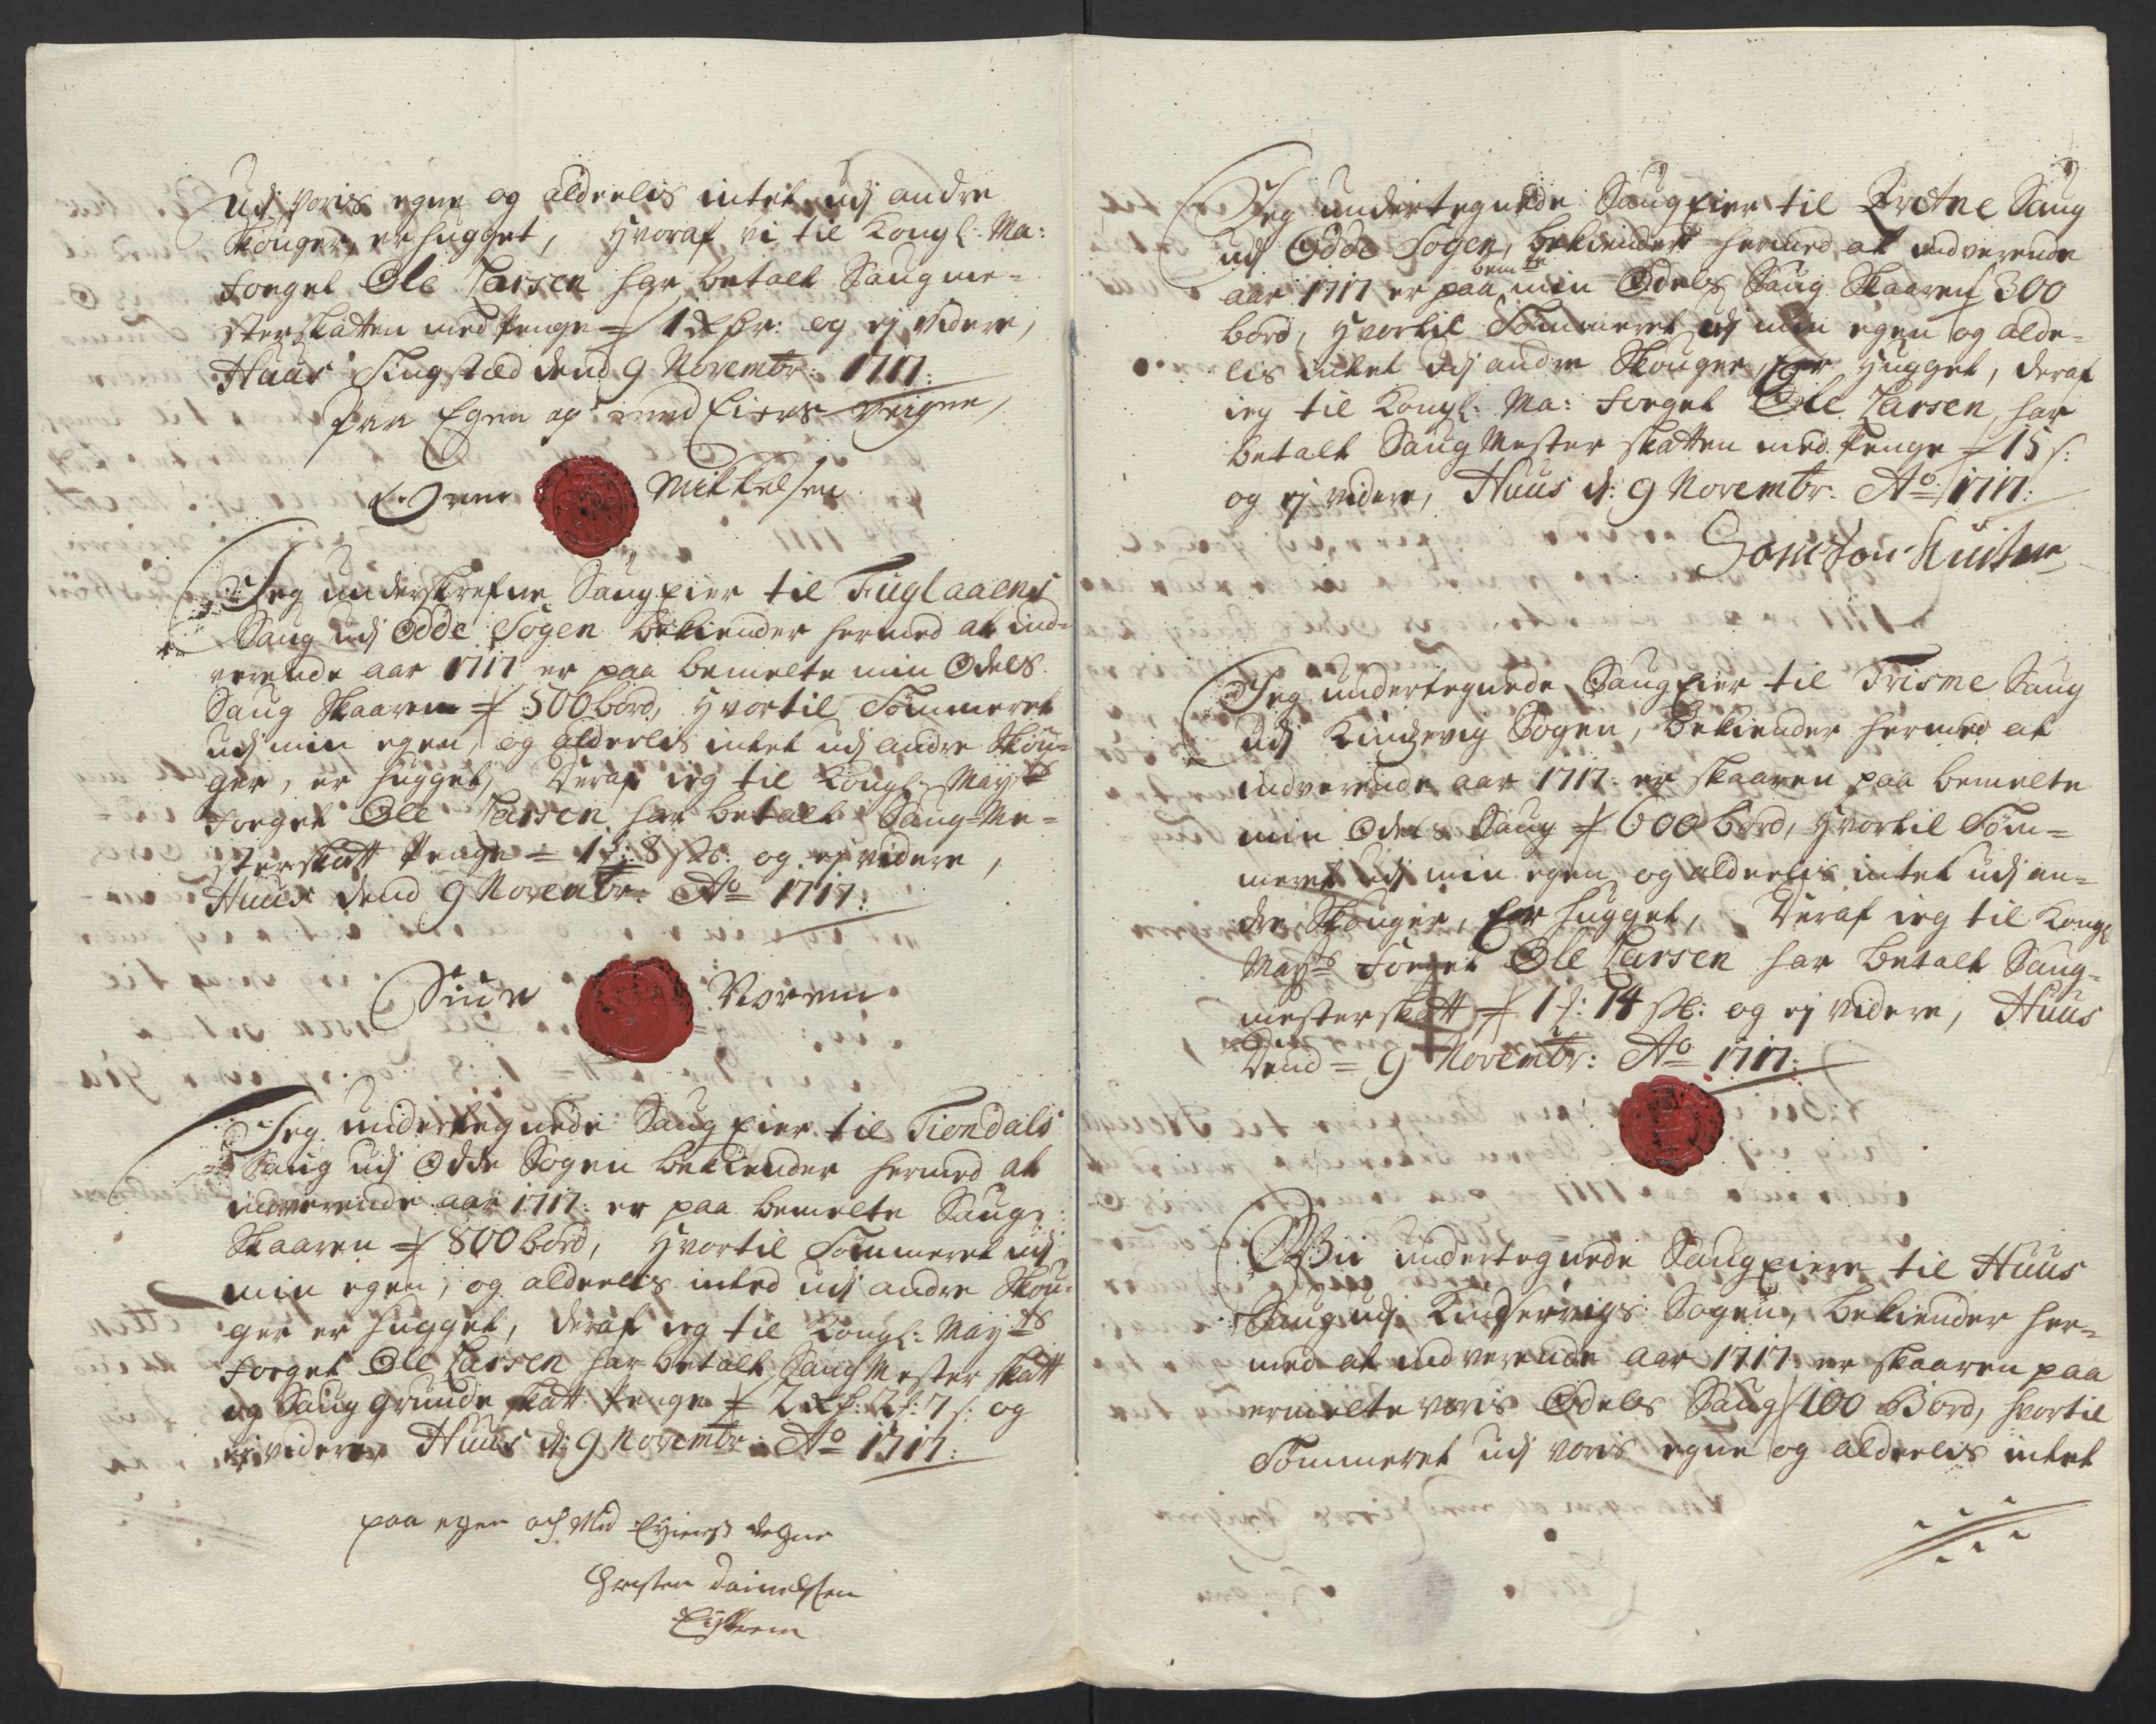 Udj voris egne og alderlis intet udj andre
Skouger, er hugget, hvoraf vi til Kongl: Ma:
foeget Ole Larsen har betalt Saugme-
sterskatten med Penge = 1 og ej videre,
Huus Tingsted dend 9 Novembr: 1717:
paa Egen og med Eiers veigne,
Mikkelsen
Jeg underskrefne Saugeier til Fuglaaens
Saug udj Odde Sogen bekiender hermed at ind-
verende aar 1717 er paa bemelte min Odels
Saug Skaaren = 500 bord, hvortil Tømmeret
udj min egen, og alderlis intet udj andre Skou-
ger, er hugget, Deraf ieg til Kongl: Mayts
foeget Ole Larsen har betalt Saug-Me-
sterskatt Penge = 1 f: 8 s: og ej videre,
Huus dend 9 Novembr: Ao 1717:
Jeg undertegnede Saugeier til Tiondals
Saug udj Odde Sogen bekiender hermed at
indverende aar 1717: er paa bemelte Saug
Skaaren = 800 bord, hvortil Tømmeret udj
min egen, og alderlis inted udj andre Skou-
ger er hugget, deraf ieg til Kongl: Mayts
foeget Ole Larsen har betalt Saug Mester skatt
og Saug grunde skatt Penge = 2 : 2 f: 7 s: og
ej videre, Huus d: 9 Novembr: Ao 1717:
paa egen och Med Eyiers vegne
Christen
Jeg undertegnede Saugeier til Saug
udj Odde Sogen, bekiender hermed at indverende
aar 1717 er paa bemte min Odels Saug Skaaren 300
bord, hvortil Tømmeret udj min egen og alde-
lis intet udj andre Skouger, Er hugget, deraf
ieg til Kongl: Ma: foeget Ole Larsen, har
betalt Saug Mester skatten med Penge = 15 s:
og ej videre, Huus d: 9 Novembr: Ao 1717:
Jeg undertegnede Saugeier til Trisme Saug
udj Kindzevig Sogen, bekiender hermed at
indverende aar 1717: er skaaren paa bemelte
min Odels Saug = 600 bord, hvortil Tøm-
meret udj min egen og alderlis intet udj an-
dre Skouger, Er hugget, Deraf ieg til Kongl
Mayts foeget Ole Larsen har betalt Saug-
mesterskatt = 1 f: 14 s: og ej videre, Huus
Dend = 9 Novembr: Ao 1717:
Wii undertegnede Saugeiere til Huus
Saug udj Kindservigs Sogen, bekiender her-
med at indverende aar 1717 er skaaren paa
ermelte voris Odels Saug 100 Bord, hvortil
Tømmeret udj voris egne og alderlis intet